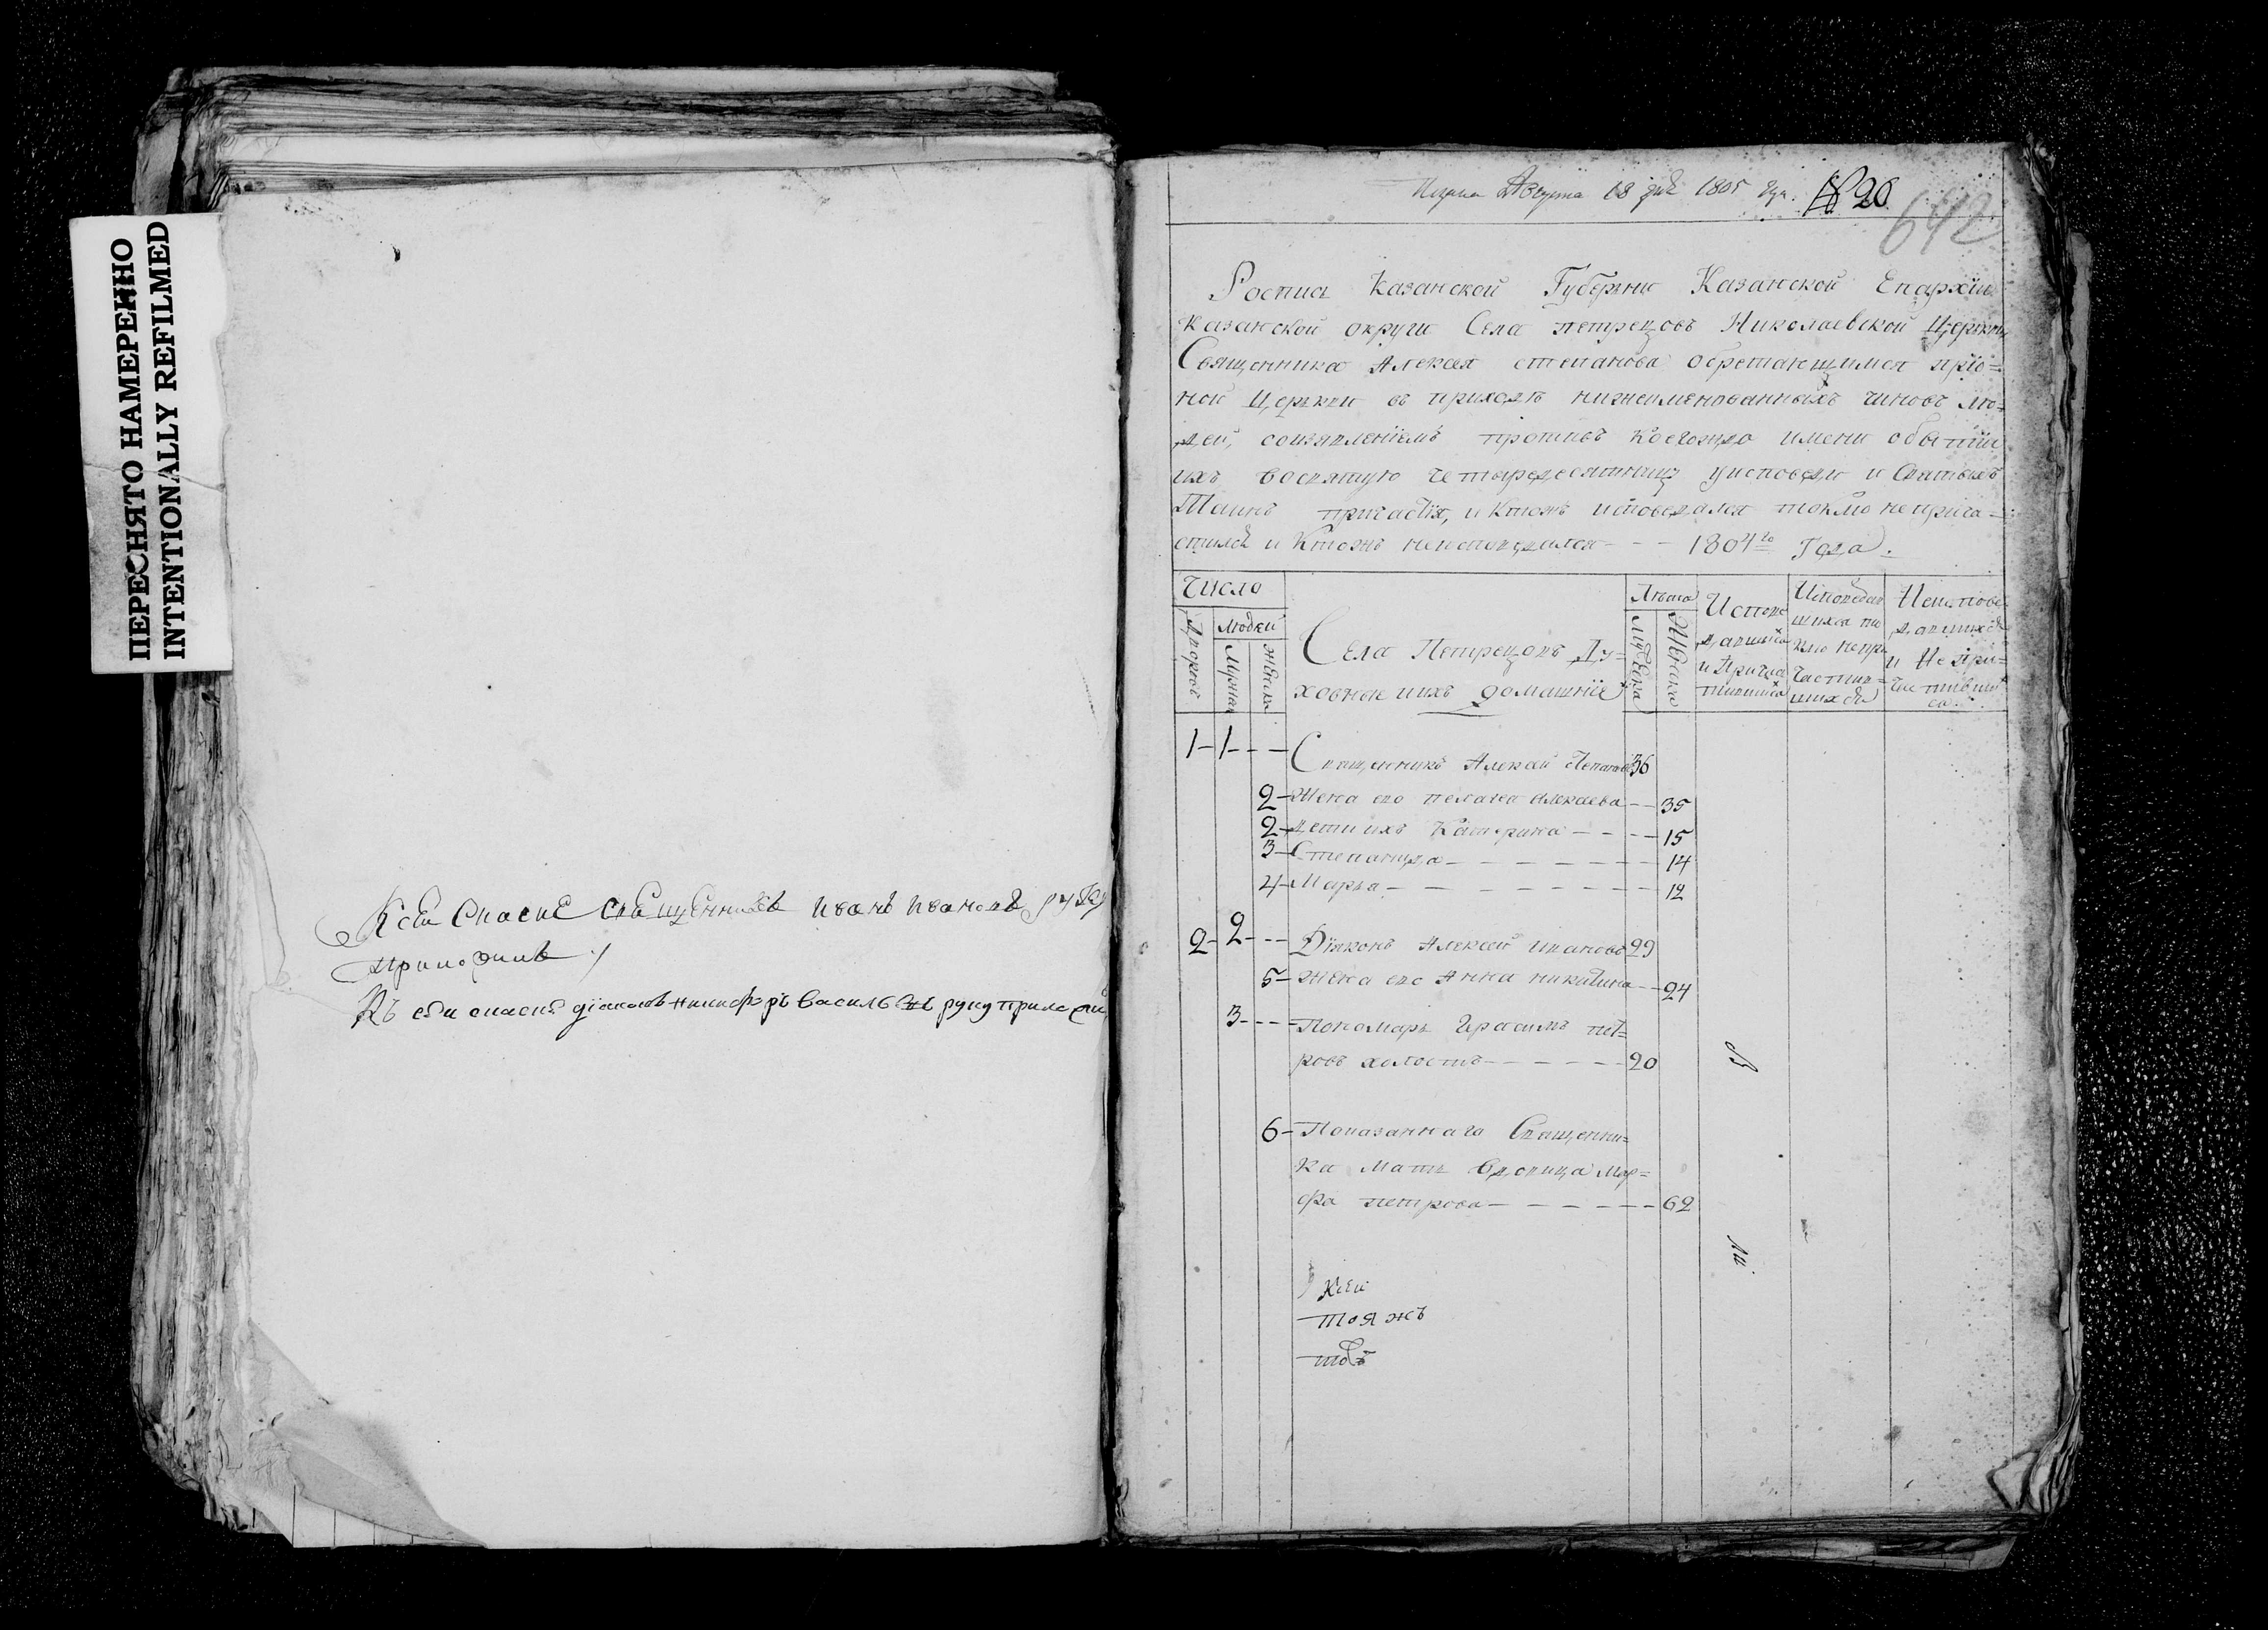 ПЕРЕСНЯТО НАМЕРЕННО
INTENTIONALLY REFILMED
Ксеи списке священникъ иванъ ивановъ руку
приложилъ
Къ сеи списке дїаконъ никифоръ васильевъ руку приложил
Августа 18 дня 1805 года № 20
642
Роспись Казанской Губернии Казанской Епархїи
Казанской округи Села петрецовъ Николаевской Церкви
Священника Алексея степанова обретающимся при о=
ной Церкви въ приходе нижеименованныхъ чиновъ лю=
деи, соизявленїемъ противъ коегождо имени о бытии
ихъ во святую четыредесятницу у исповеди и Святыхъ
Таинъ причастїя, и ктожъ исповедался токмо не прича=
стился и Ктожъ неисповедался - - - 1804го Года.
Число
Дворовъ
людей
Мужска
Женска
Села Петрецовъ Ду=
ховные ииxъ домашнїе
Лѣта
Мужска
Женска
Испове
давшихся
и Прича
стившихся
Исповедав
шихся то
кмо не при
частив=
шихся
Неиспове
давшихся
и Не при=
частивших
ся.
1 - 1 - - - Священникъ Алексей Степановъ 36
2 - Жена его пелагея алексеева - - 35
2 - дети ихъ Катерина - - - - 15
3 - Степанида - - - - - - - 14
4 - Марья - - - - - - - 12
2 - 2 - - - Дїяконъ Алексей ивановъ 29
5 - жена его Анна никитина - - 24
3 - - - - Пономарь Герасимъ пет=
ровъ холостъ - - - - - - 20
6 - Показаннаго Священни=
ка мать вдовица мар=
фа петрова - - - - - - 62
бы
ли
Ксеи
тояжъ